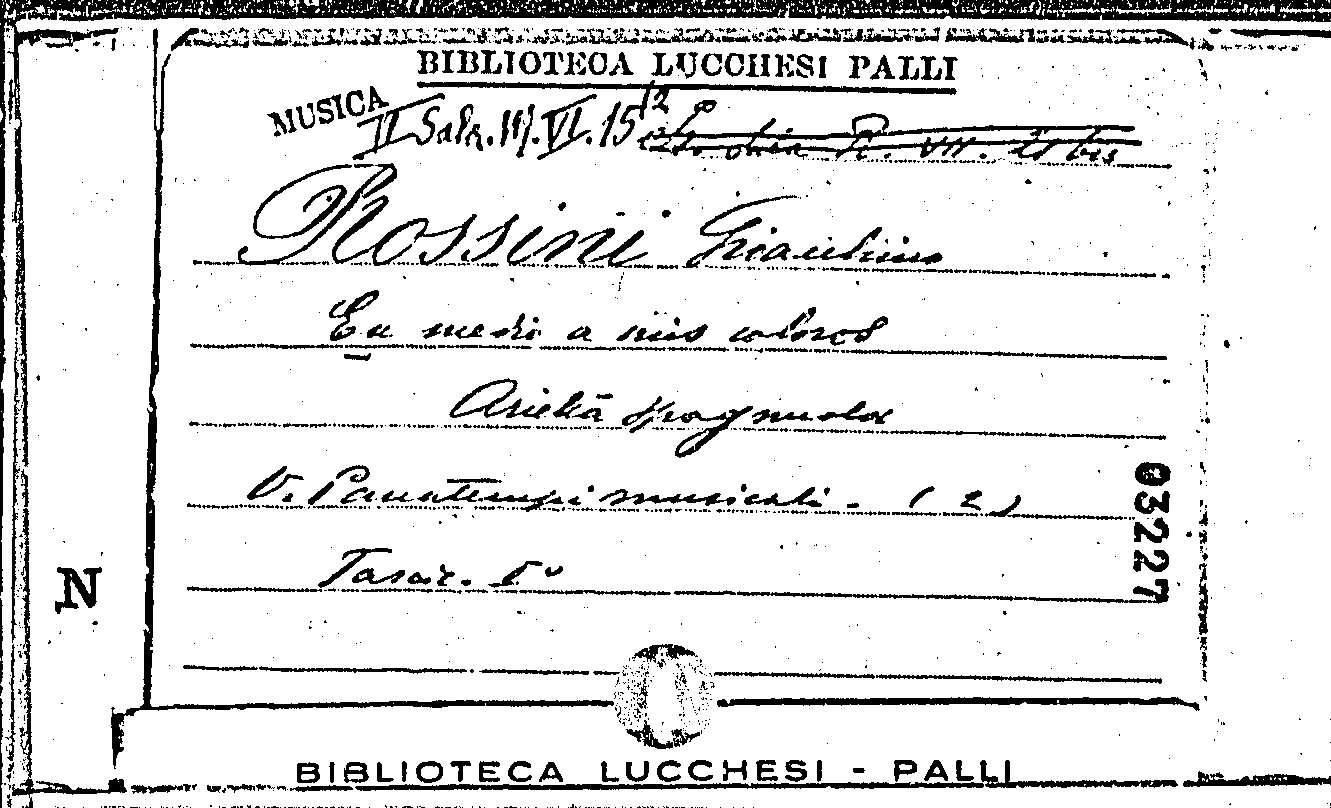 BIBLIOTECA LUCCHESI PALLI
MUSICA
II Sala. III. VI. 15 12 R. VII. 21 bis
Rossini Gioacchino
En medio a mis colores
Arietta spagnuola
V. Passatempi musicali. - ( 2 )
Fascic. I°
03227
N
BIBLIOTECA LUCCHESI - PALLI